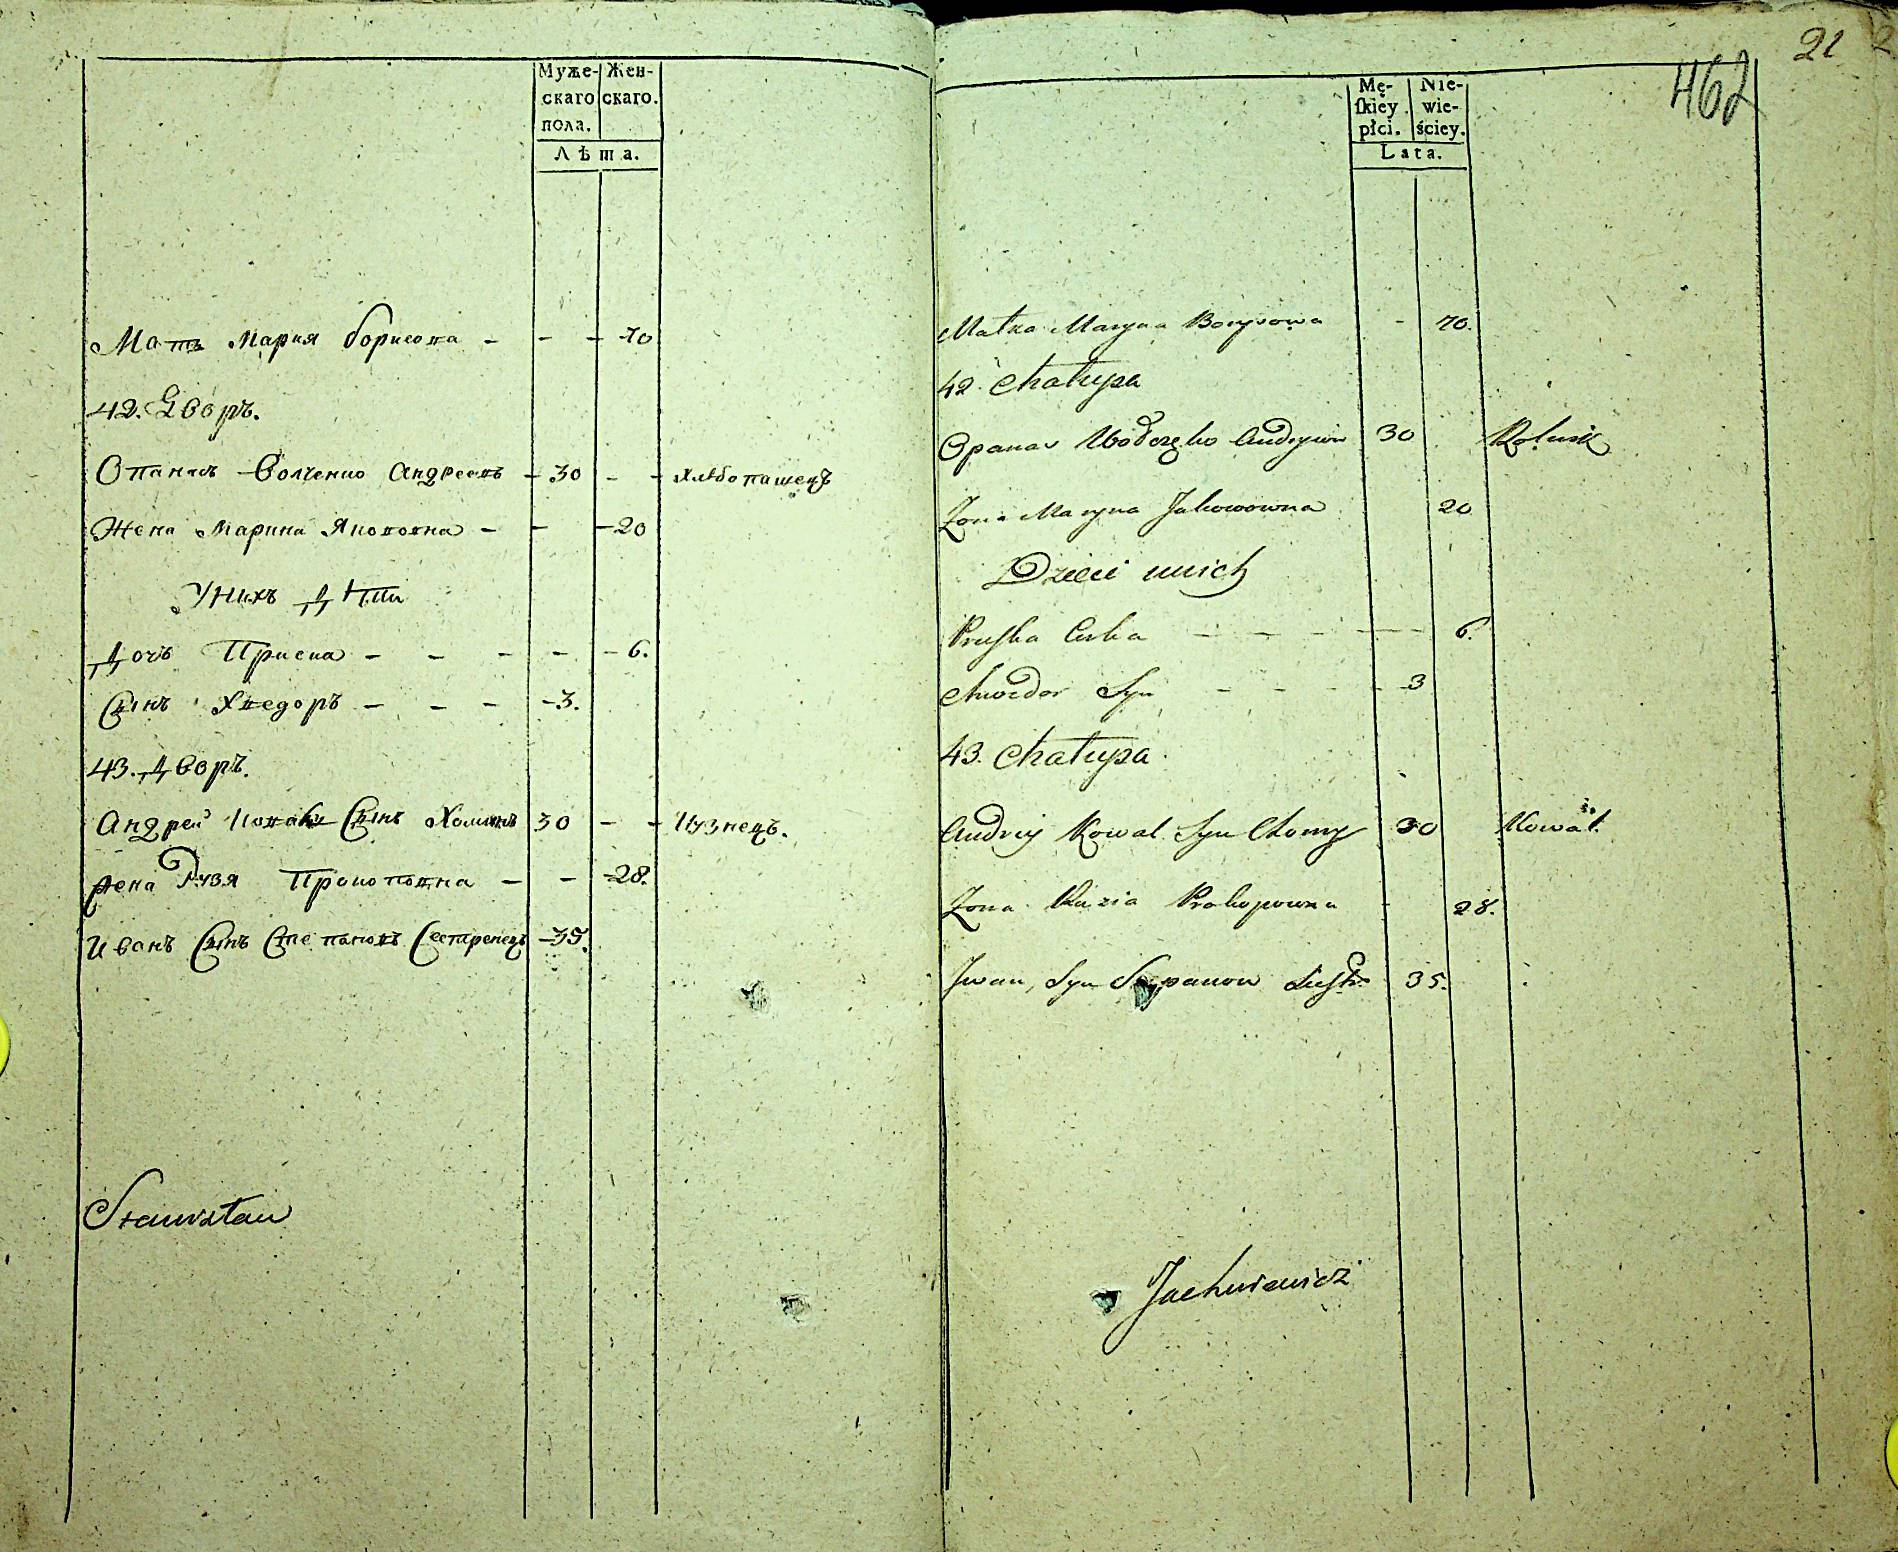 21
462
Муже- Жен-
скаго скаго.
пола.
Лѣта.
Мать Мария Борисова - - - 70
42. Дворъ.
Опанасъ Волченко Андреевъ - 30 - - хлѣбопашецъ
Жена Марина Якововна - - - 20
У нихъ дѣти
Дочь Приска - - - - - 6.
Сынъ Хведоръ - - - - 3.
43. Дворъ.
Андрей Коваль Сынъ Хоминъ 30 - - Кузнецъ.
Жена Рузя Прокоповна - - - 28.
Иванъ Сынъ Степановъ Сестренецъ - 35.
Stanisław
Mę- Nie-
ſkiey wie-
płci. ściey.
Lata.
Matka Maryna Borysowa - 70.
42. Chałupa
Opanas Wołczęko Andrejow 30 Rolnik
Żona Maryna Jakowowna 20
Dzieci u nich
Pruska Curka - - - - - 6.
Chwedor Syn - - - - - 3
43. Chałupa.
Andrij Kowal Syn Chomy 30 Kowal.
Żona Ruzia Prokopowna - 28.
Iwan, Syn Stepanow 35.
Jachniewicz